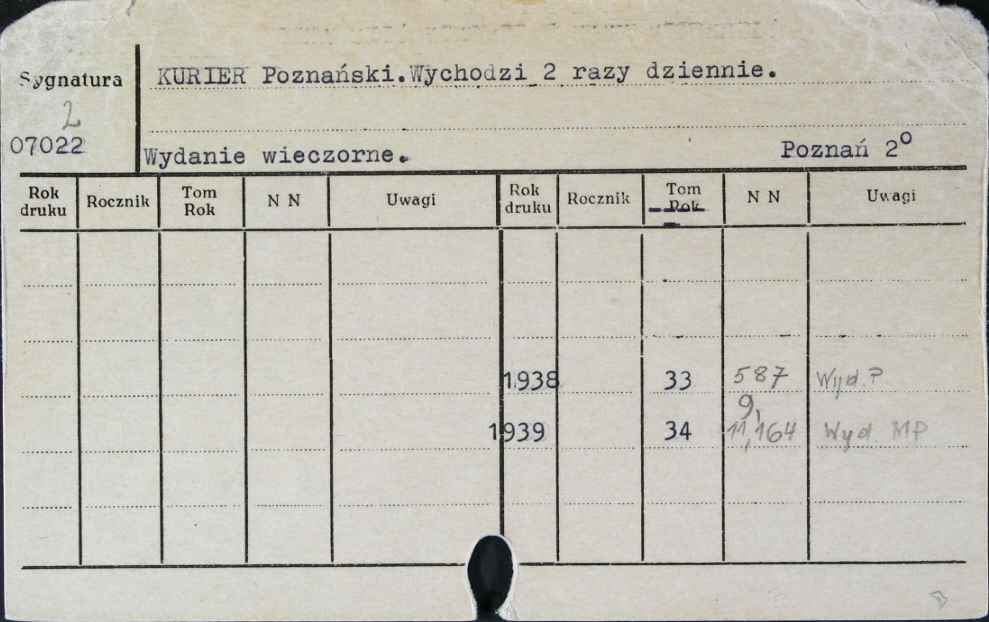 Sygnatura
KURIER Poznański.Wychodzi 2 razy dziennie.
2
07022
Wydanie wieczorne.
Poznań 2º
Rok druku Rocznik Tom Rok N N Uwagi Rok druku Rocznik Tom Rok N N Uwagi
1938 33 587 Wyd.?
9,
1939 34 11,164 Wyd. MP